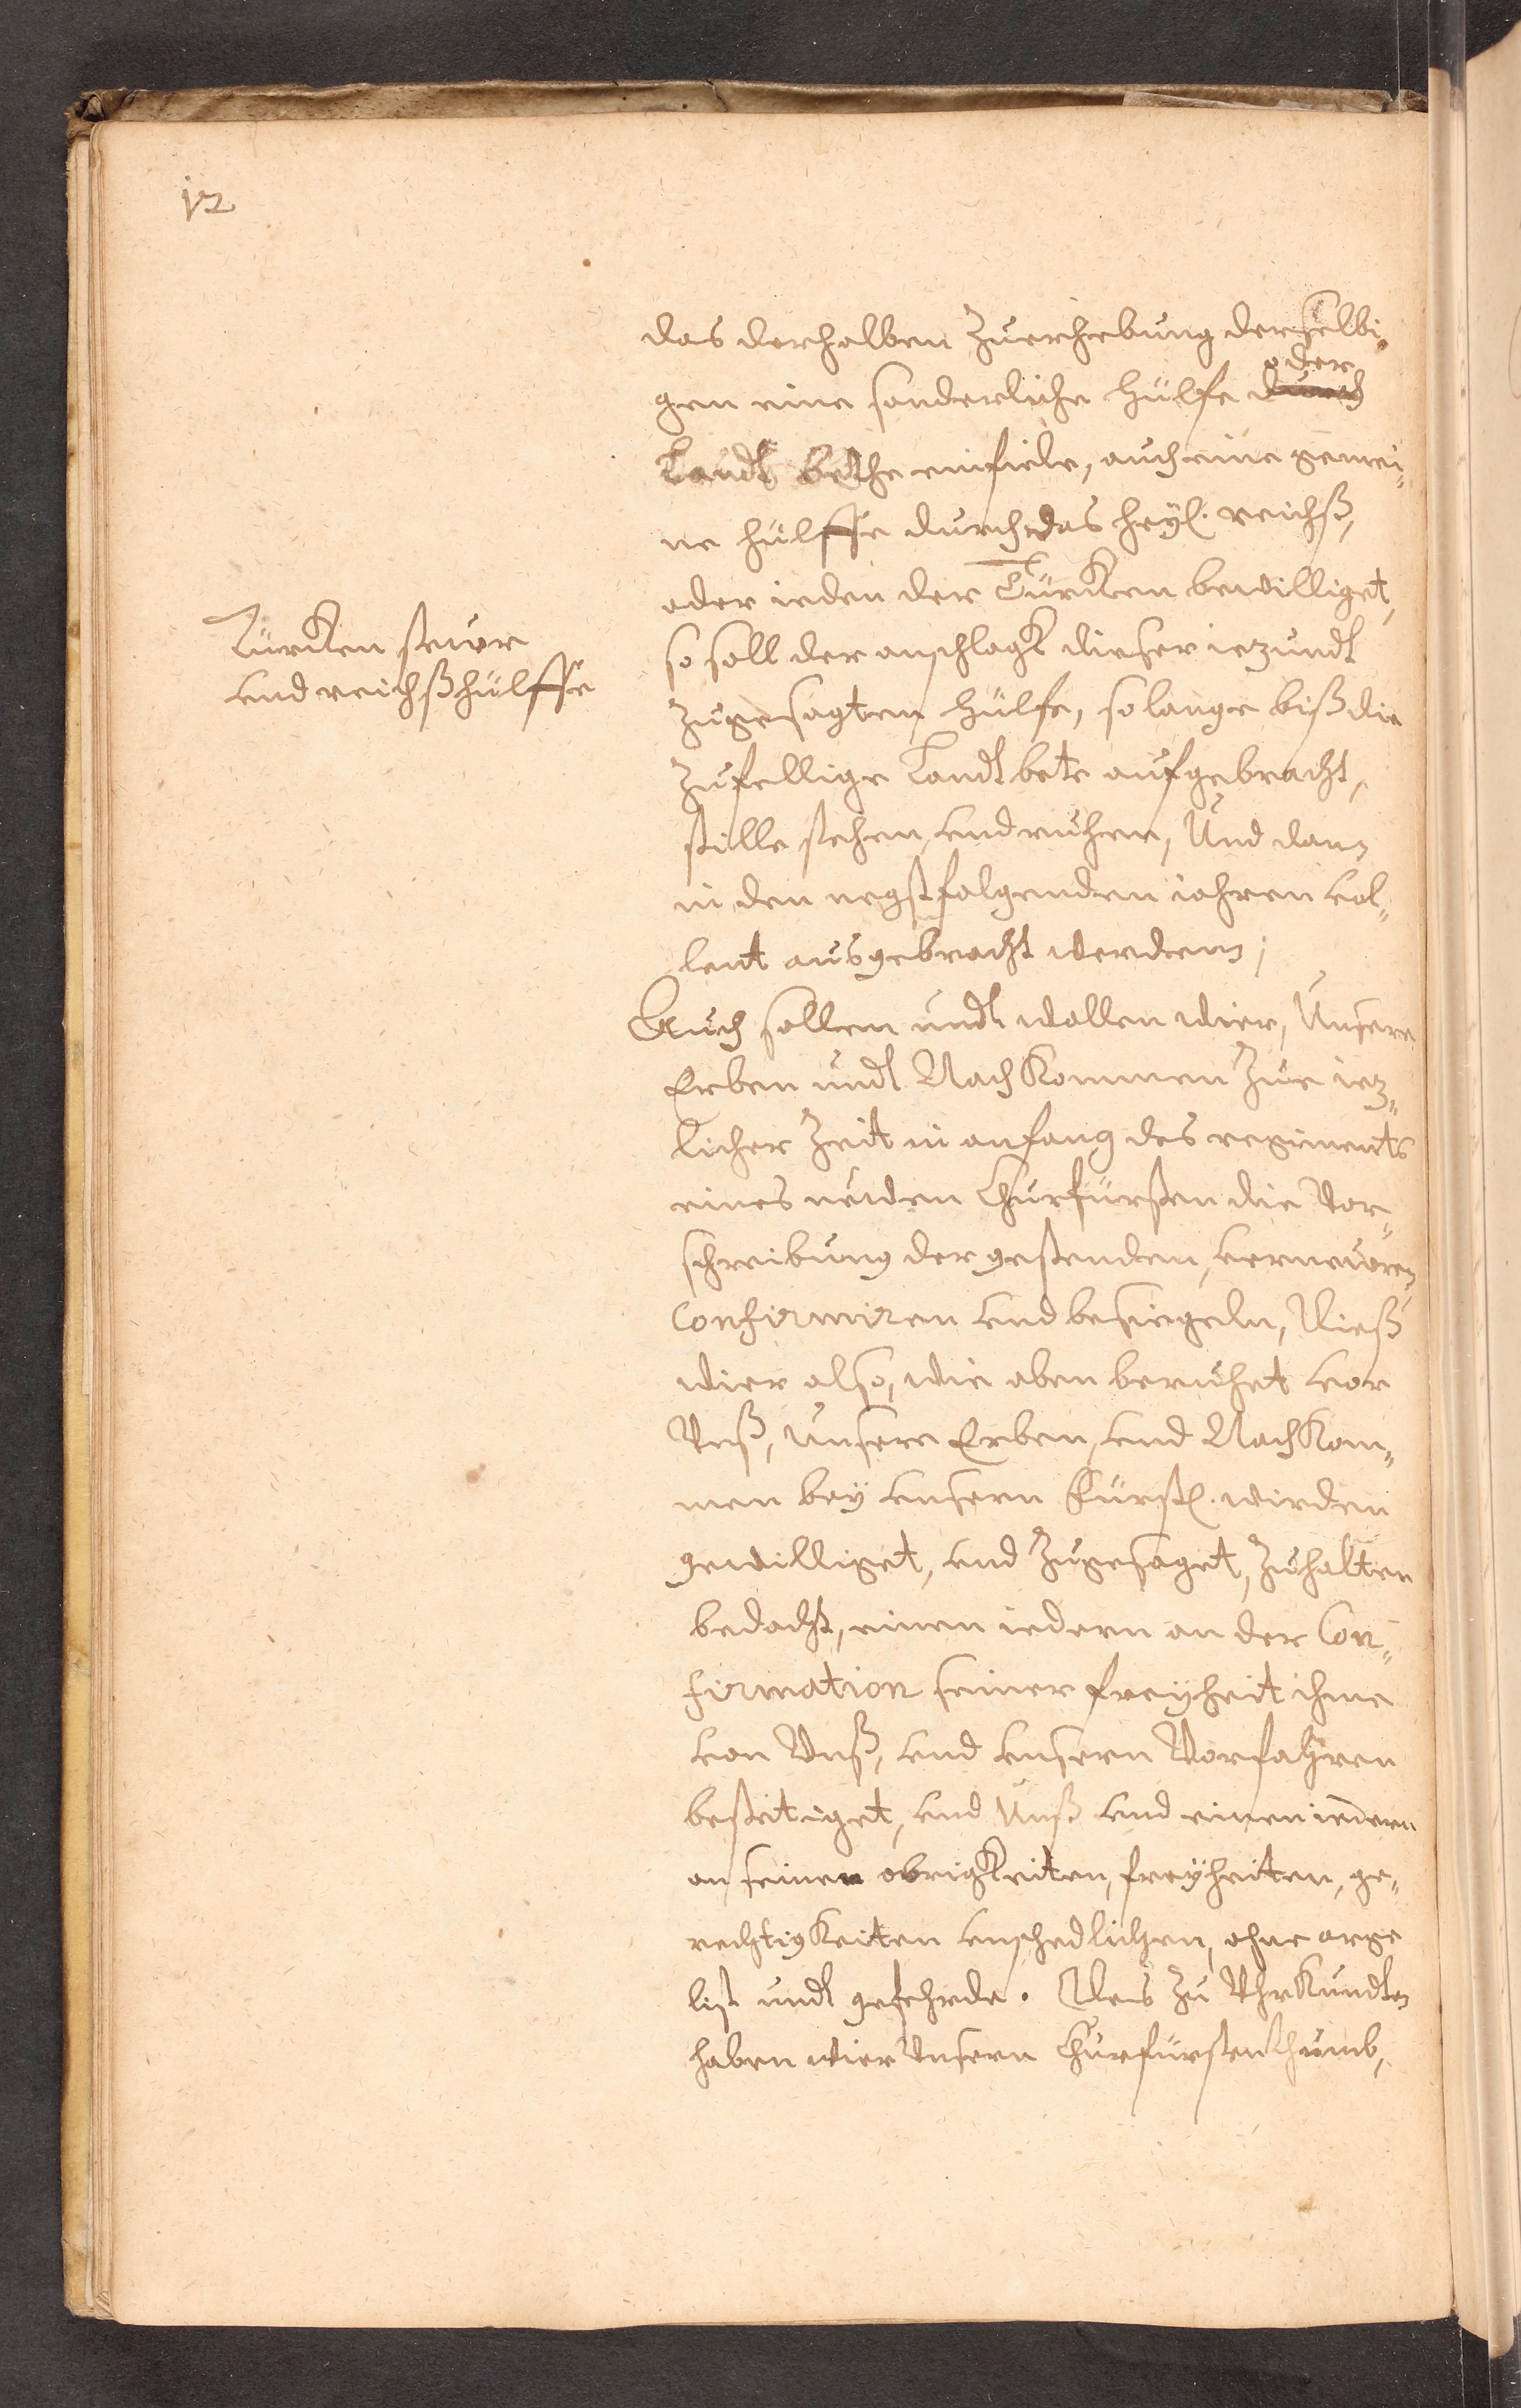 12
das derhalben Zuerhebung derselbi„
gen eine sonderliche hülfe durch
oder
Landt Bethe einfiele, auch eine gemei„
ne hülffe durch das heyl. reichß,
oder ieden der Türcken bewilliget,
Türcken steuer
vnd reichßhülffe
so soll der anschlagk dieser iezundt
Zugesagten hülfe, so lange biß die
Zufellige Landtbete aufgebracht,
stille stehen, vnd ruhen, Und dann
in den negstfolgenden iahren vol„
lent ausgebracht werdenn;
Auch sollen undt wollen wier, Unsere
Erben undt Nachkommen Zue iez„
licher Zeit in anfang des regiments
eines neuen Churfürsten die Vor„
schreibung der gestenden, verneuern
Confirmiren vnd besiegeln, Dieß
wier also, wie oben beruhet vor
Vnß, Unsere Erben, vnd Nachkom„
men bey vnsern Fürstl. wirden
gewilliget, vnd Zugesaget, Zuhalten
bedacht, einen iedern an der Con„
firmation seiner freyheit ihme
von Vnß, vnd vnsern Vorfahren
bestetiget, vnd Unß vnd einen iedern
an seinen obrigkeiten, freyheiten, ge„
rechtigkeiten vnschedlichen, ohne arge
list undt gefehrde. Des Zu Vhrkundten
haben wier Vnsern Churfürstenthumb,